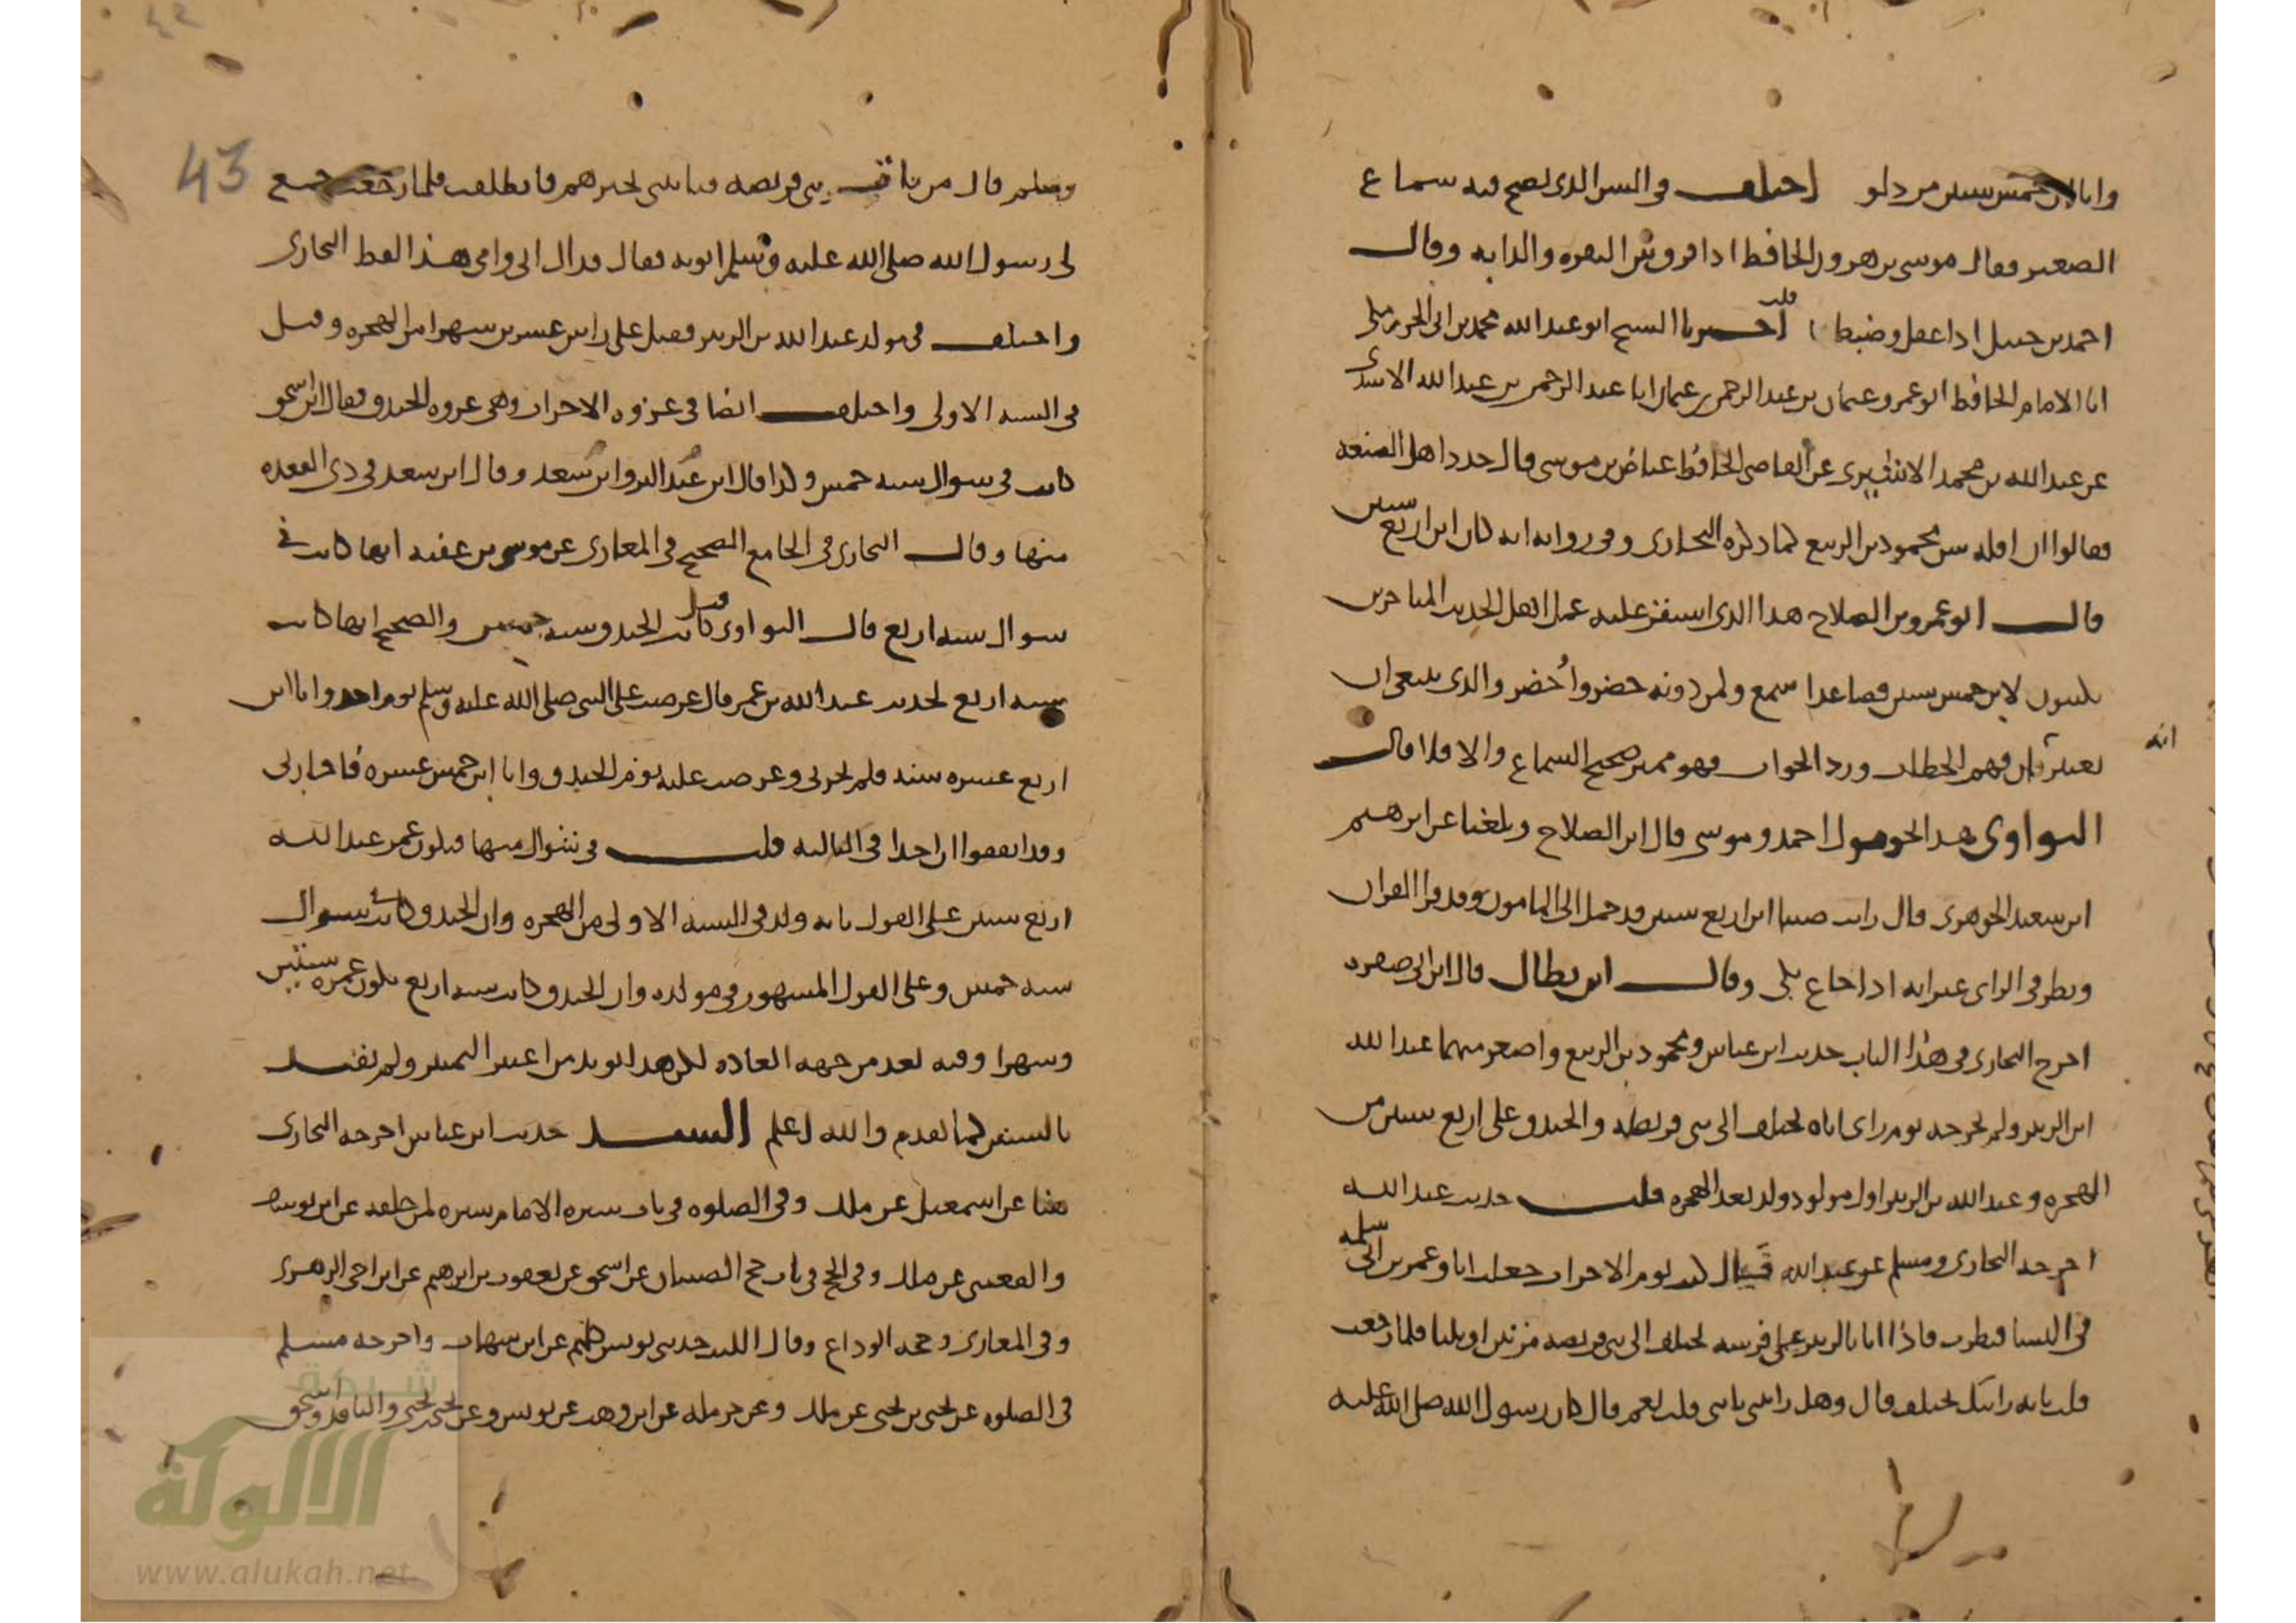 وانا ابن خمس سنين من دلو اختلف في السن الذي يصح فيه سماع
الصغير فقال موسى بن هرون الحافظ اذا فرق بين البقرة والدابة وقال
احمد بن حنبل اذا عقل وضبط قلت اخبرنا الشيخ ابو عبد الله محمد بن ابي الحرم
انا الامام الحافظ ابو عمرو عثمان بن عبد الرحمن بن عثمان انا عبد الرحمن بن عبد الله الاسدي
عن عبد الله بن محمد الاشيري عن القاضي الحافظ عياض بن موسى قال حدد اهل الصنعة
فقالوا ان اقله سن محمود بن الربيع كما ذكره البخاري وفي رواية انه كان ابن اربع سنين
قال ابو عمرو بن الصلاح هذا الذي استقر عليه عمل اهل الحديث المتاخرين
يكتبون لابن خمس سنين فصاعدا سمع ولمن دونه حضر واحضر والذي ينبغي ان
يعتبر انه ان فهم الخطاب ورد الجواب فهو مميز صحيح السماع والا فلا قال
النواوي هذا نحو قول احمد وموسى قال ابن الصلاح وبلغنا عن ابرهيم
ابن سعيد الجوهري قال رايت صبيا ابن اربع سنين قد حمل الى المامون وقد قرا القران
ونظر في الراي غير انه اذا جاع بكى وقال ابن بطال قال ابن ابي صفره
اخرج البخاري في هذا الباب حديث ابن عباس ومحمود بن الربيع واصغر منهما عبد الله
ابن الزبير ولم يخرجه يوم راى اباه يختلف الى بني قريظة والخندق على اربع سنين من
الهجرة وعبد الله بن الزبير اول مولود ولد بعد الهجرة قلت حديث عبد الله
اخرجه البخاري ومسلم عن عبد الله قال كنت يوم الاحزاب جعلت انا وعمر بن ابي سلمه
في النسا فنظرت فاذا انا بالزبير على فرسه يختلف الى بني قريظة مرتين او ثلثا فلما رجعت
قلت يا ابه رايتك تختلف قال وهل رايتني يا بني قلت نعم قال كان رسول الله صلى الله عليه
43
وسلم قال من ياتي بني قريظة فياتيني بخبرهم فانطلقت فلما رجعت جمع
لي رسول الله صلى الله عليه وسلم ابويه فقال فداك ابي وامي هذا لفظ البخاري
واختلف في مولد عبد الله بن الزبير فقيل على راس عشرين شهرا من الهجرة وقيل
في السنة الاولى واختلف ايضا في غزوة الاحزاب وهي غزوة الخندق فقال ابن اسحق
كانت في شوال سنة خمس وكذا قال ابن عبد البر وابن سعد وقال ابن سعد في ذي القعدة
منها وقال البخاري في الجامع الصحيح في المغازي عن موسى بن عقبة انها كانت في
شوال سنة اربع قال النواوي قيل كانت الخندق سنة خمس والصحيح انها كانت
سنة اربع لحديث عبد الله بن عمر قال عرضت على النبي صلى الله عليه وسلم يوم احد وانا ابن
اربع عشرة سنة فلم يجزني وعرضت عليه يوم الخندق وانا ابن خمس عشرة فاجازني
وقد اتفقوا ان احدا في الثالثة قلت في شوال منها فيكون عمر عبد الله
اربع سنين على القول بانه ولد في السنة الاولى من الهجرة وان الخندق كانت شوال
سنة خمس وعلى القول المشهور في مولده وان الخندق كانت سنة اربع يكون عمره سنتين
وشهرا وفيه بعد من جهة العادة لكن هذا يويد من اعتبر التمييز ولم يقيد
بالسنين كما تقدم والله اعلم السند حديث ابن عباس اخرجه البخاري
هنا عن اسمعيل عن ملك وفي الصلوة في باب سترة الامام سترة لمن خلفه عن ابن يوسف
والقعنبي عن ملك وفي الحج في باب حج الصبيان عن اسحق عن يعقوب بن ابرهيم عن ابن اخي الزهري
وفي المغازي وحجة الوداع وقال الليث حدثني يونس كلهم عن ابن شهاب واخرجه مسلم
في الصلوة عن يحيى بن يحيى عن ملك وعن حرملة عن ابن وهب عن يونس وعن يحيى بن يحيى والناقد واسحق
شبكة
الالوكة
www.alukah.net